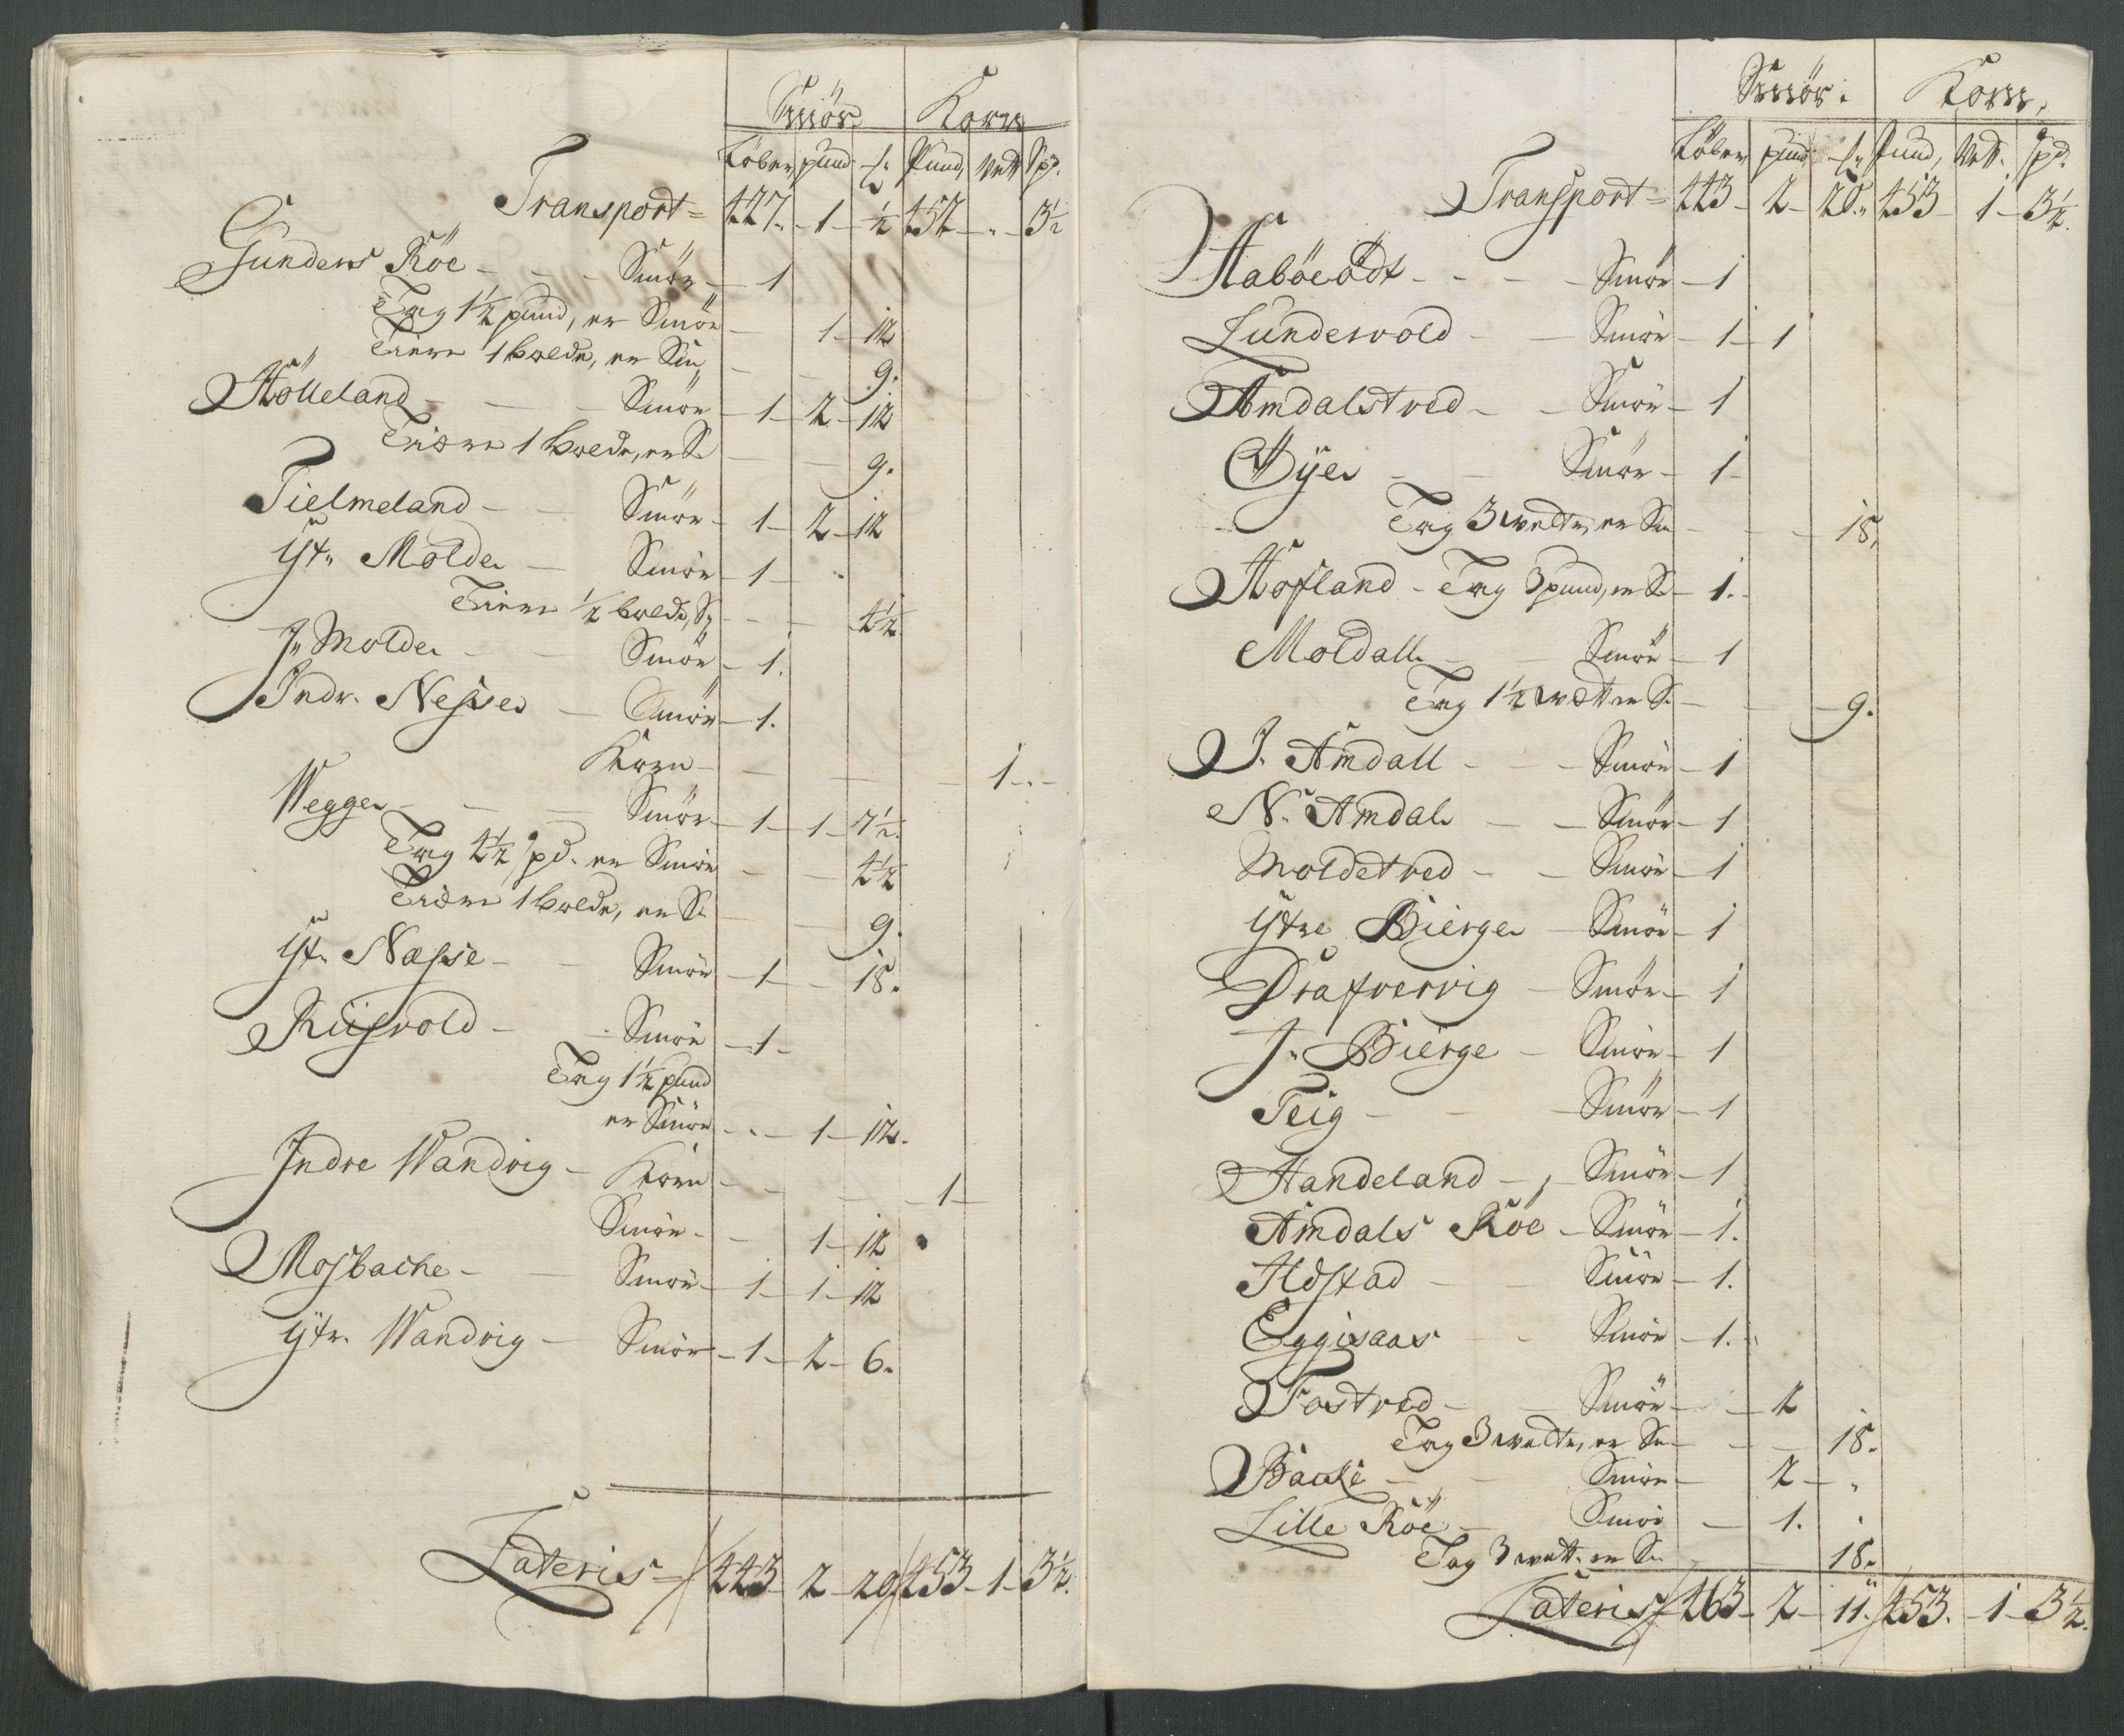 Smör. Korn
Löber pund ℔ Pund, Vett Spd.
Transport= 427.-1-½ 452-"-3½
Gunders Röe - - - Smör - 1
Tag 1½ pund, er Smör - 1-12
Tiere 1 bolde, er Sm, - - 9.
Hölleland - - - Smör - 1-2-12
Tiære 1 bolde, er S. - - 9.
Tielmeland - - Smör - 1-2-12
Yt. Molde - Smör - 1-"
Tiere ½ bolde, S. - - 4½
J. Molde - - Smör - 1.
Indr. Nesse - Smör - 1.
Korn - - - - 1.-
Wegge - - - Smör - 1-1-7½.
Tag 4½ spd. er Smör - - 4½
Tiære 1 bolde, er S. - 9.
Yt. Næsse - - Smör - 1 - 18.
Riisvold - - Smör - 1 -
Tag 1½ pund
er Smör - - 1-12.
Indre Wandvig - Korn - - - - 1 -
Smör - - 1-12
Mosbache - - Smör - 1-1-12
Ytr. Wandvig - Smör - 1-2-6.
Lateris 443-2-20 453-1-3½.
Smör. Korn,
Löber pund ℔ Pund, Vett. spd.
Transport= 443-2-20. 453-1-3½.
Haböeödt - - - Smör - 1
Lundevold - - Smör - 1-1
Amdalstved - - Smör - 1
Øye - - Smör - 1-
Tag 3 vedt, er Sm - - - 18.
Hofland - Tag 3 pund, er S. - 1.-
Moldall - - Smör - 1
Tag 1½ Vett er S. - - 9.
I. Amdall - - - Smör - 1
N. Amdal - - Smör - 1
Moldetved - - Smör - 1
Ytre Bierge - Smör - 1
Drafvervig - Smör - 1
J. Bierge - Smör - 1
Teig - - - Smör - 1
Handeland - , - Smör - 1
Amdals Röe - Smör - 1.
Ildstad - - Smör - 1.
Eggisaas - Smör - 1.
Tostved - - Smör - - 2
Tag 3 vedte, er Sm - - - 18.
Backe - - Smör - 2 - "
Lille Röe - Smör - 1.
Tag 3 vett. er Sm. 18.
Lateris 463-2-11. 453.-1-3½.